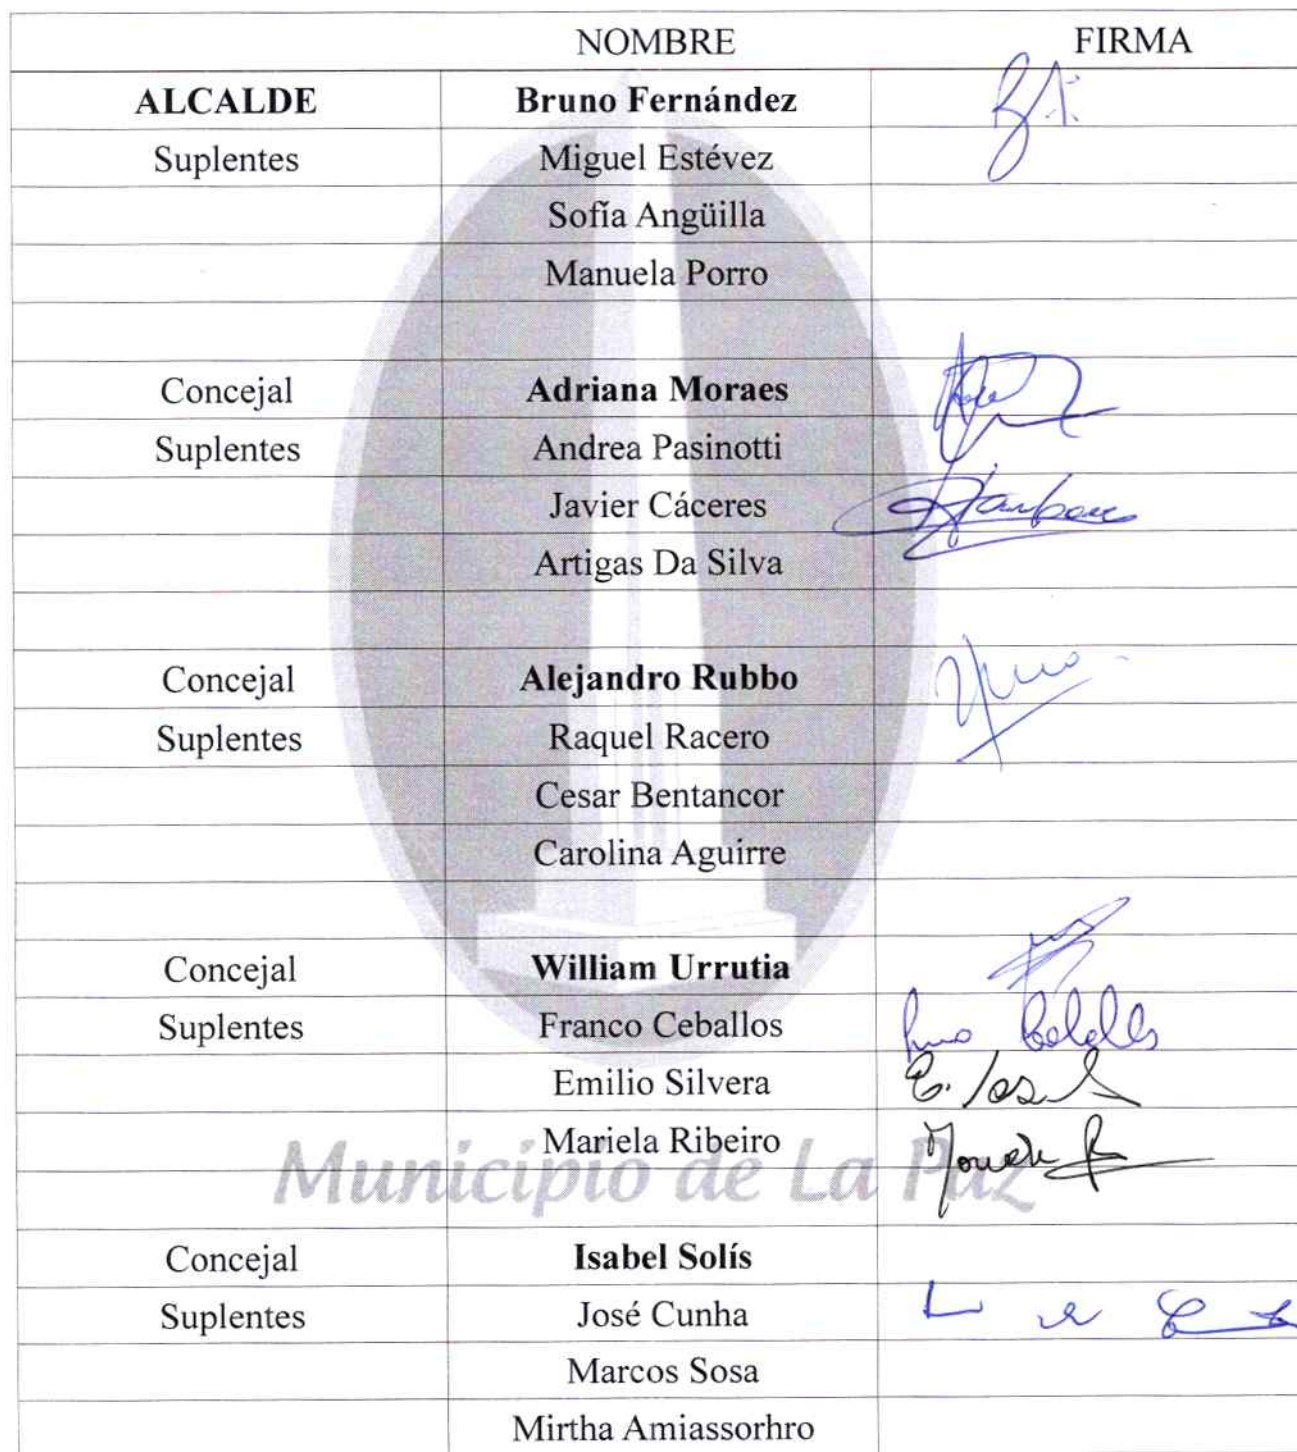 NOMBRE FIRMA
ALCALDE Bruno Fernández
Suplentes Miguel Estévez
Sofía Angüilla
Manuela Porro
Concejal Adriana Moraes
Suplentes Andrea Pasinotti
Javier Cáceres
Artigas Da Silva
Concejal Alejandro Rubbo
Suplentes Raquel Racero
Cesar Bentancor
Carolina Aguirre
Concejal William Urrutia
Suplentes Franco Ceballos
Emilio Silvera
Mariela Ribeiro
Municipio de La Paz
Concejal Isabel Solís
Suplentes José Cunha
Marcos Sosa
Mirtha Amiassorhro